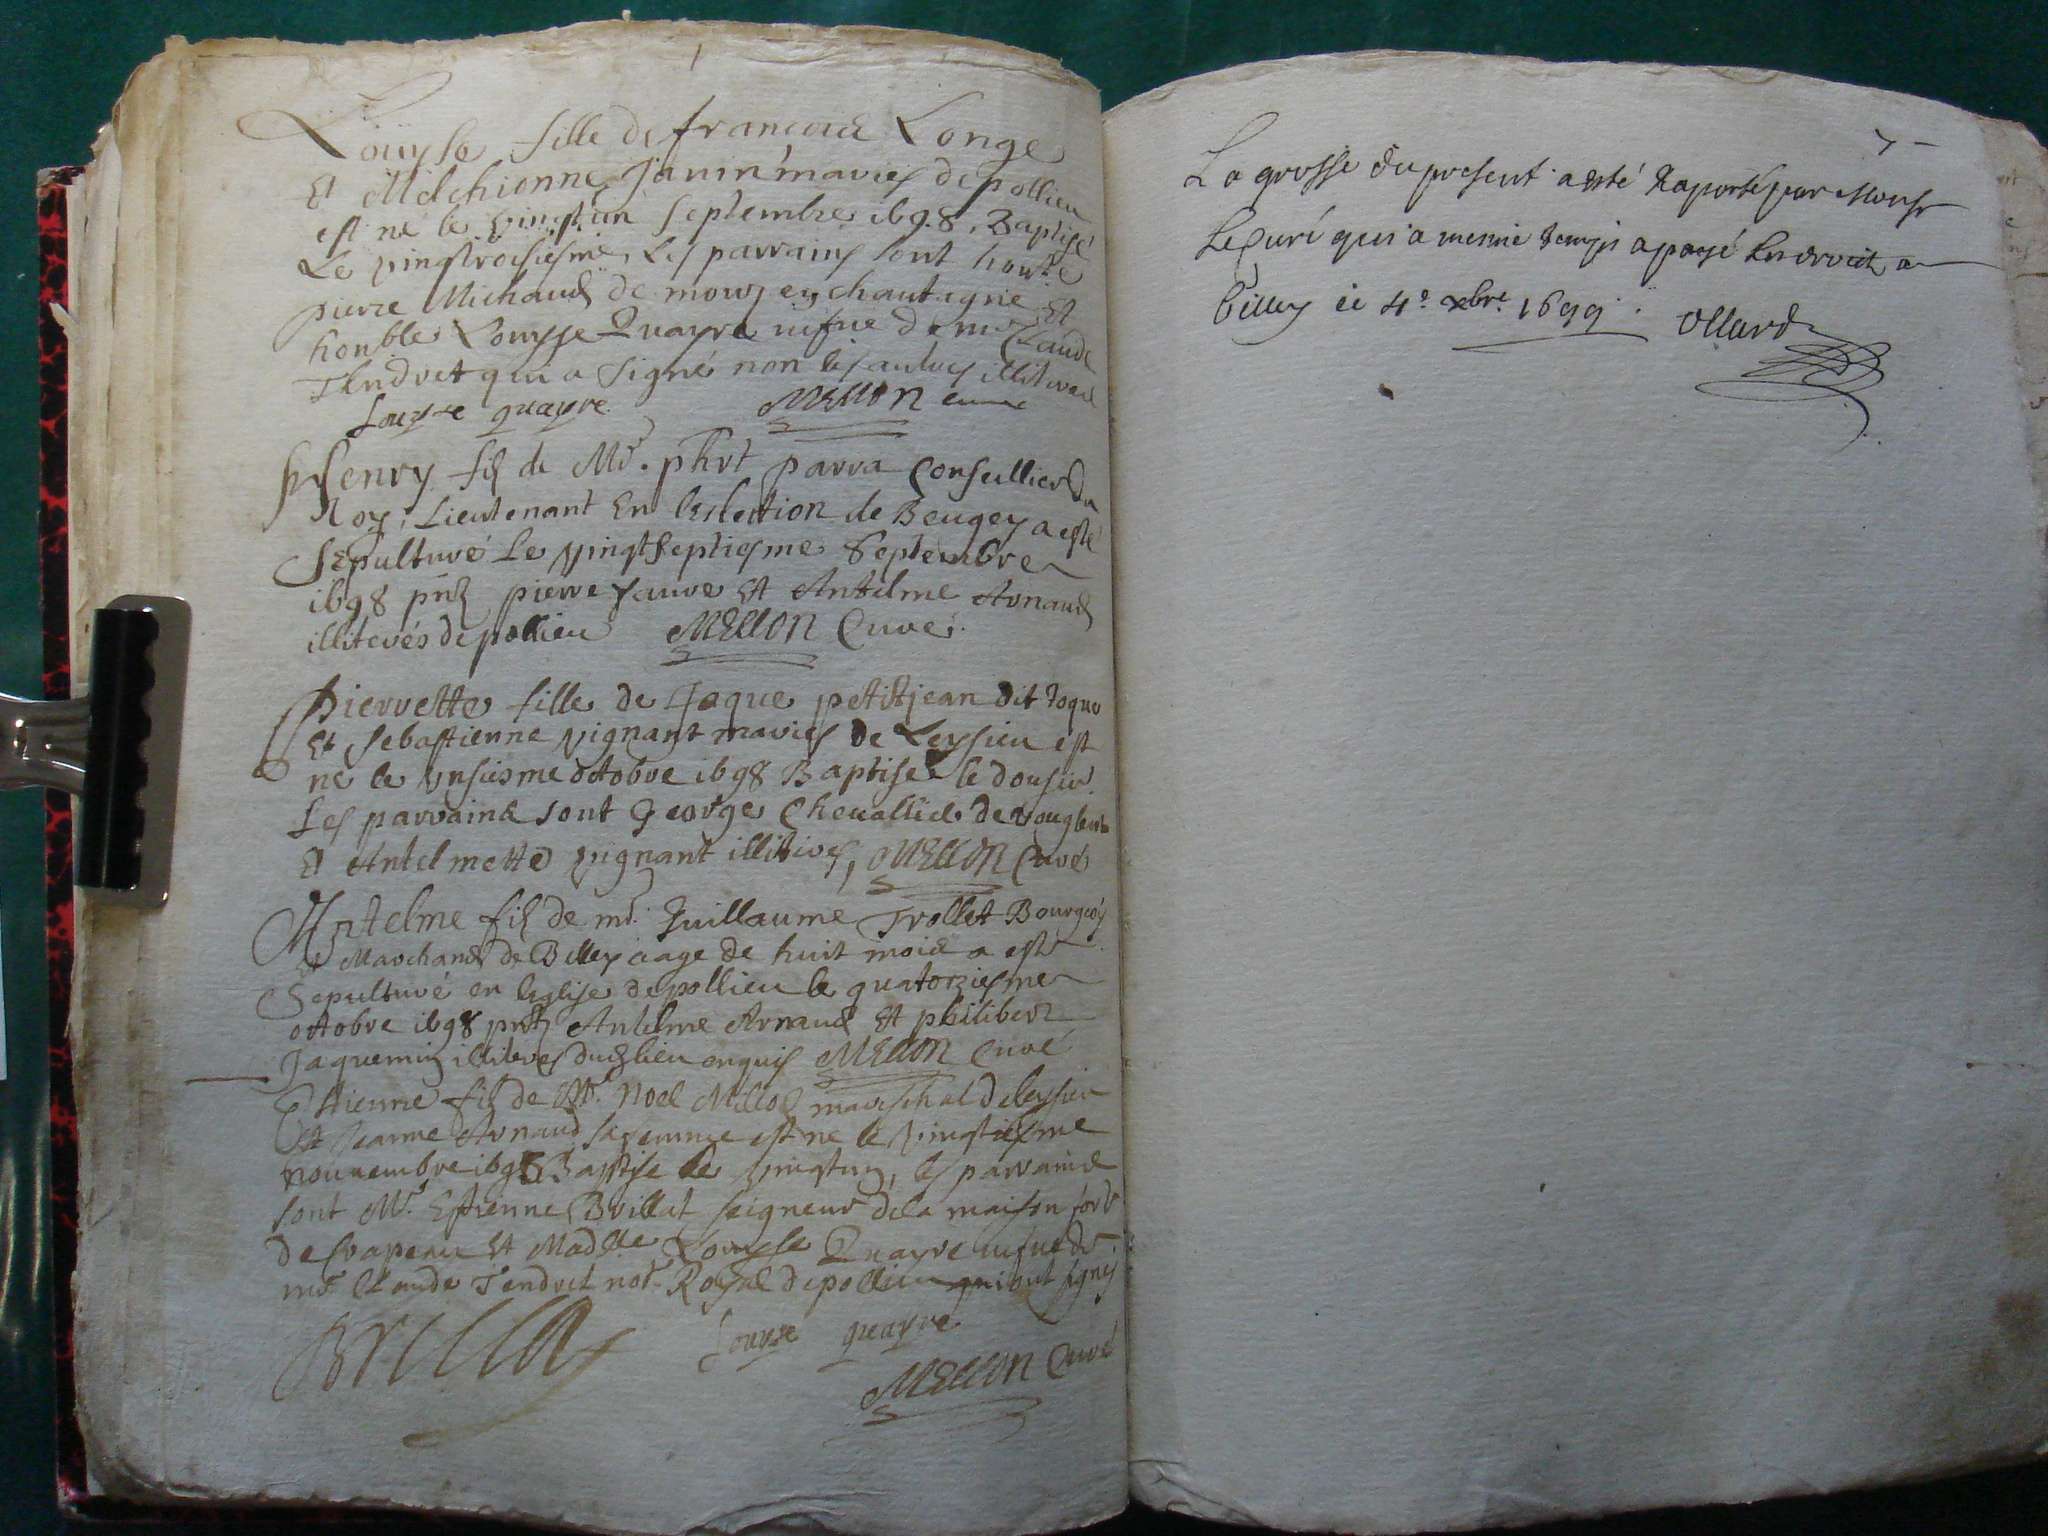 Louyse fille de francois Longe
Et Melchionne Janin maries de pollieu
est né le vingt un septembre 1698. Baptisé
Le vingtroisiesme, Les parrains sont
pierre Michaud de mouz en chautagne Et
honble Louyse Quayre de mre Claude
Tendret qui a signé non les aultres
Louyse quayre MELLON curé
Henry fils de Mr. phrt parra Conseillier du
Roy, Lieutenant En leslection de Beugey a esté
Sepulturé Le vingtseptiesme Septembre
1698 pierre Et Antelme Arnaud
illiterés de pollieu MELLON Curé
Pierrette fille de Jaque petitjean dit Joque
Et Sebastienne vignant maries de Leysieu est
né le unsiesme octobre 1698 Baptisé le dousie.
Les parrains sont George Chevallier de
Et Antelmette vignant MELLON Curé
Antelme fils de mr. Guillaume Trollet Bourgeois
Et Marchand de Billey aage de huit mois a esté
Sepulturé en leglise de pollieu le quatorziesme
octobre 1698 Antelme Arnaud Et philibert
Jaquemin MELLON Curé
Etienne fils de Mr. Noel mareschal de leysieu
Et Jeanne Arnaud sa femme est ne le vingtiesme
nouvembre 1698 Baptise le vingtun, les parrains
sont Mr. Estienne Brillat seigneur de la maison fort
de Et Madlle Louyse Quayre de
mre Claude Tendret notre Royal de pollieu qui ont signes
Brillat Louyse quayre
MELLON Curé
7
La grosse du present a esté Raporté par Monsr
Le Curé qui a mesme temps a payé Les droits a
Billey ce 4e xbre 1699. Ollard